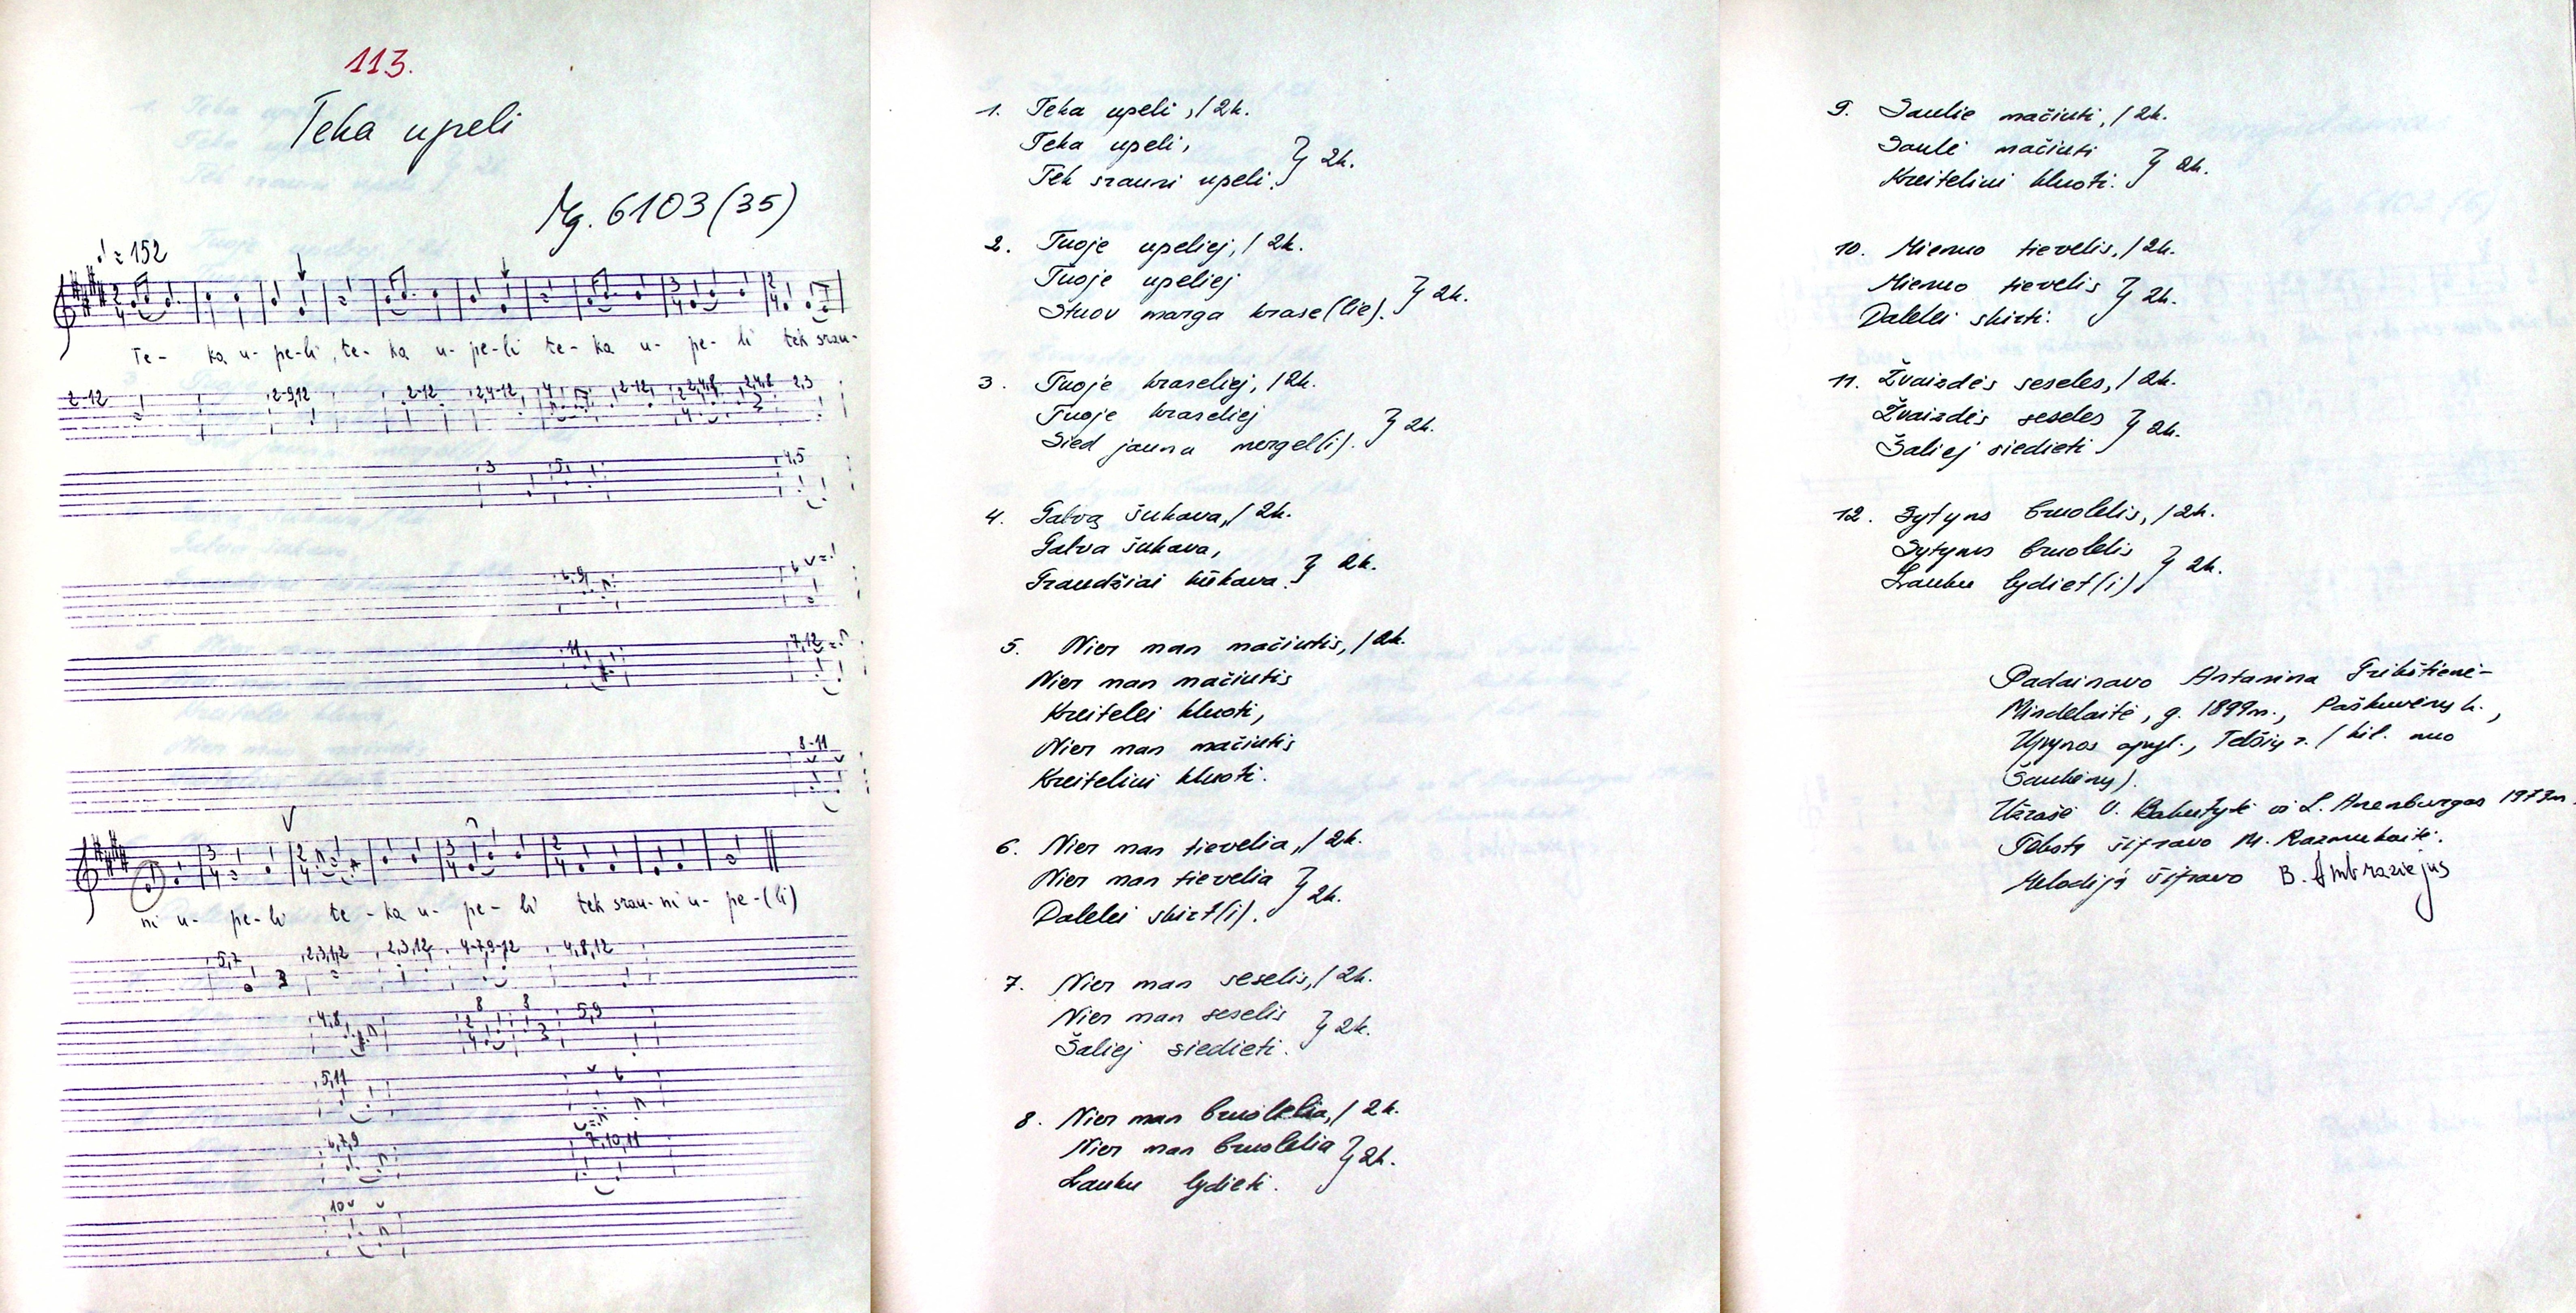 113.
Teka upeli
Mg. 6103 (35)
♩ = 152
Te- ka u- pe-li, te- ka u- pe-li te- ka u- pe- li tek srau-
2-12 2-9,12 2-12 2,4-12 4 2-12 2,4,8 2,4,8 2,3
3 5 4,5
6,9 6
11 7,12
8-11
ni u- pe-li te-ka u- pe- li tek srau-ni u- pe-(li)
5,7 2,3,12 2,3,12 4-7,9-12 4,8,12
4,8 8 8 5,9
5,11 6
6,7,9 7,10,11
10
1. Teka upeli, / 2k.
Teka upeli,
Tek srauni upeli. } 2k.
2. Tuoje upeliej, / 2k.
Tuoje upeliej
Stuov marga krase(lie). } 2k.
3. Tuoje kraseliej, / 2k.
Tuoje kraseliej
Sied jauna mergel(i). } 2k.
4. Galvą šukava, / 2k.
Galva šukava,
Graudžiai kūkava. } 2k.
5. Nier man mačiutis, / 2k.
Nier man mačiutis
Kreitelei kluoti,
Nier man mačiutis
Kreiteliui kluoti.
6. Nier man tievelia, / 2k.
Nier man tievelia
Dalelei skirt(i). } 2k.
7. Nier man seselis, / 2k.
Nier man seselis
Šaliej siedieti. } 2k.
8. Nier man bruolelia, / 2k.
Nier man bruolelia
Lauku lydieti. } 2k.
9. Saulie mačiuti, / 2k.
Saulė mačiuti
Kreiteliui kluoti. } 2k.
10. Mienuo tievelis, / 2k.
Mienuo tievelis
Dalelei skirti. } 2k.
11. Žvaizdės seseles, / 2k.
Žvaizdės seseles
Šaliej siedieti } 2k.
12. Sytyns bruolelis, / 2k.
Sytyns bruolelis
Lauku lydiet(i) } 2k.
Padainavo Antanina Grikštienė-
Mindelaitė, g. 1899m., Paškuvėnų k.,
Upynos apyl., Telšių r. / kil. nuo
Šaukėnų).
Užrašė V. ir L. 1973m.
Tekstą šifravo M. Razmukaitė.
Melodiją šifravo B. Ambraziejus